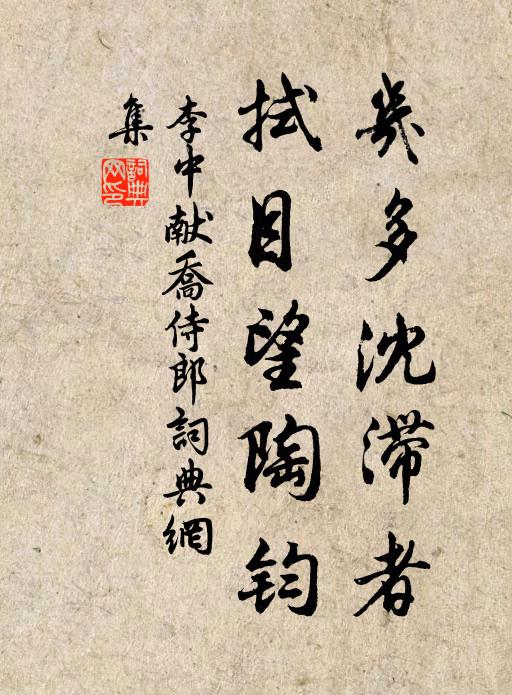 幾多沈滯者
拭目望陶鈞
李中献喬侍郎詞典網
集
詞典
网印